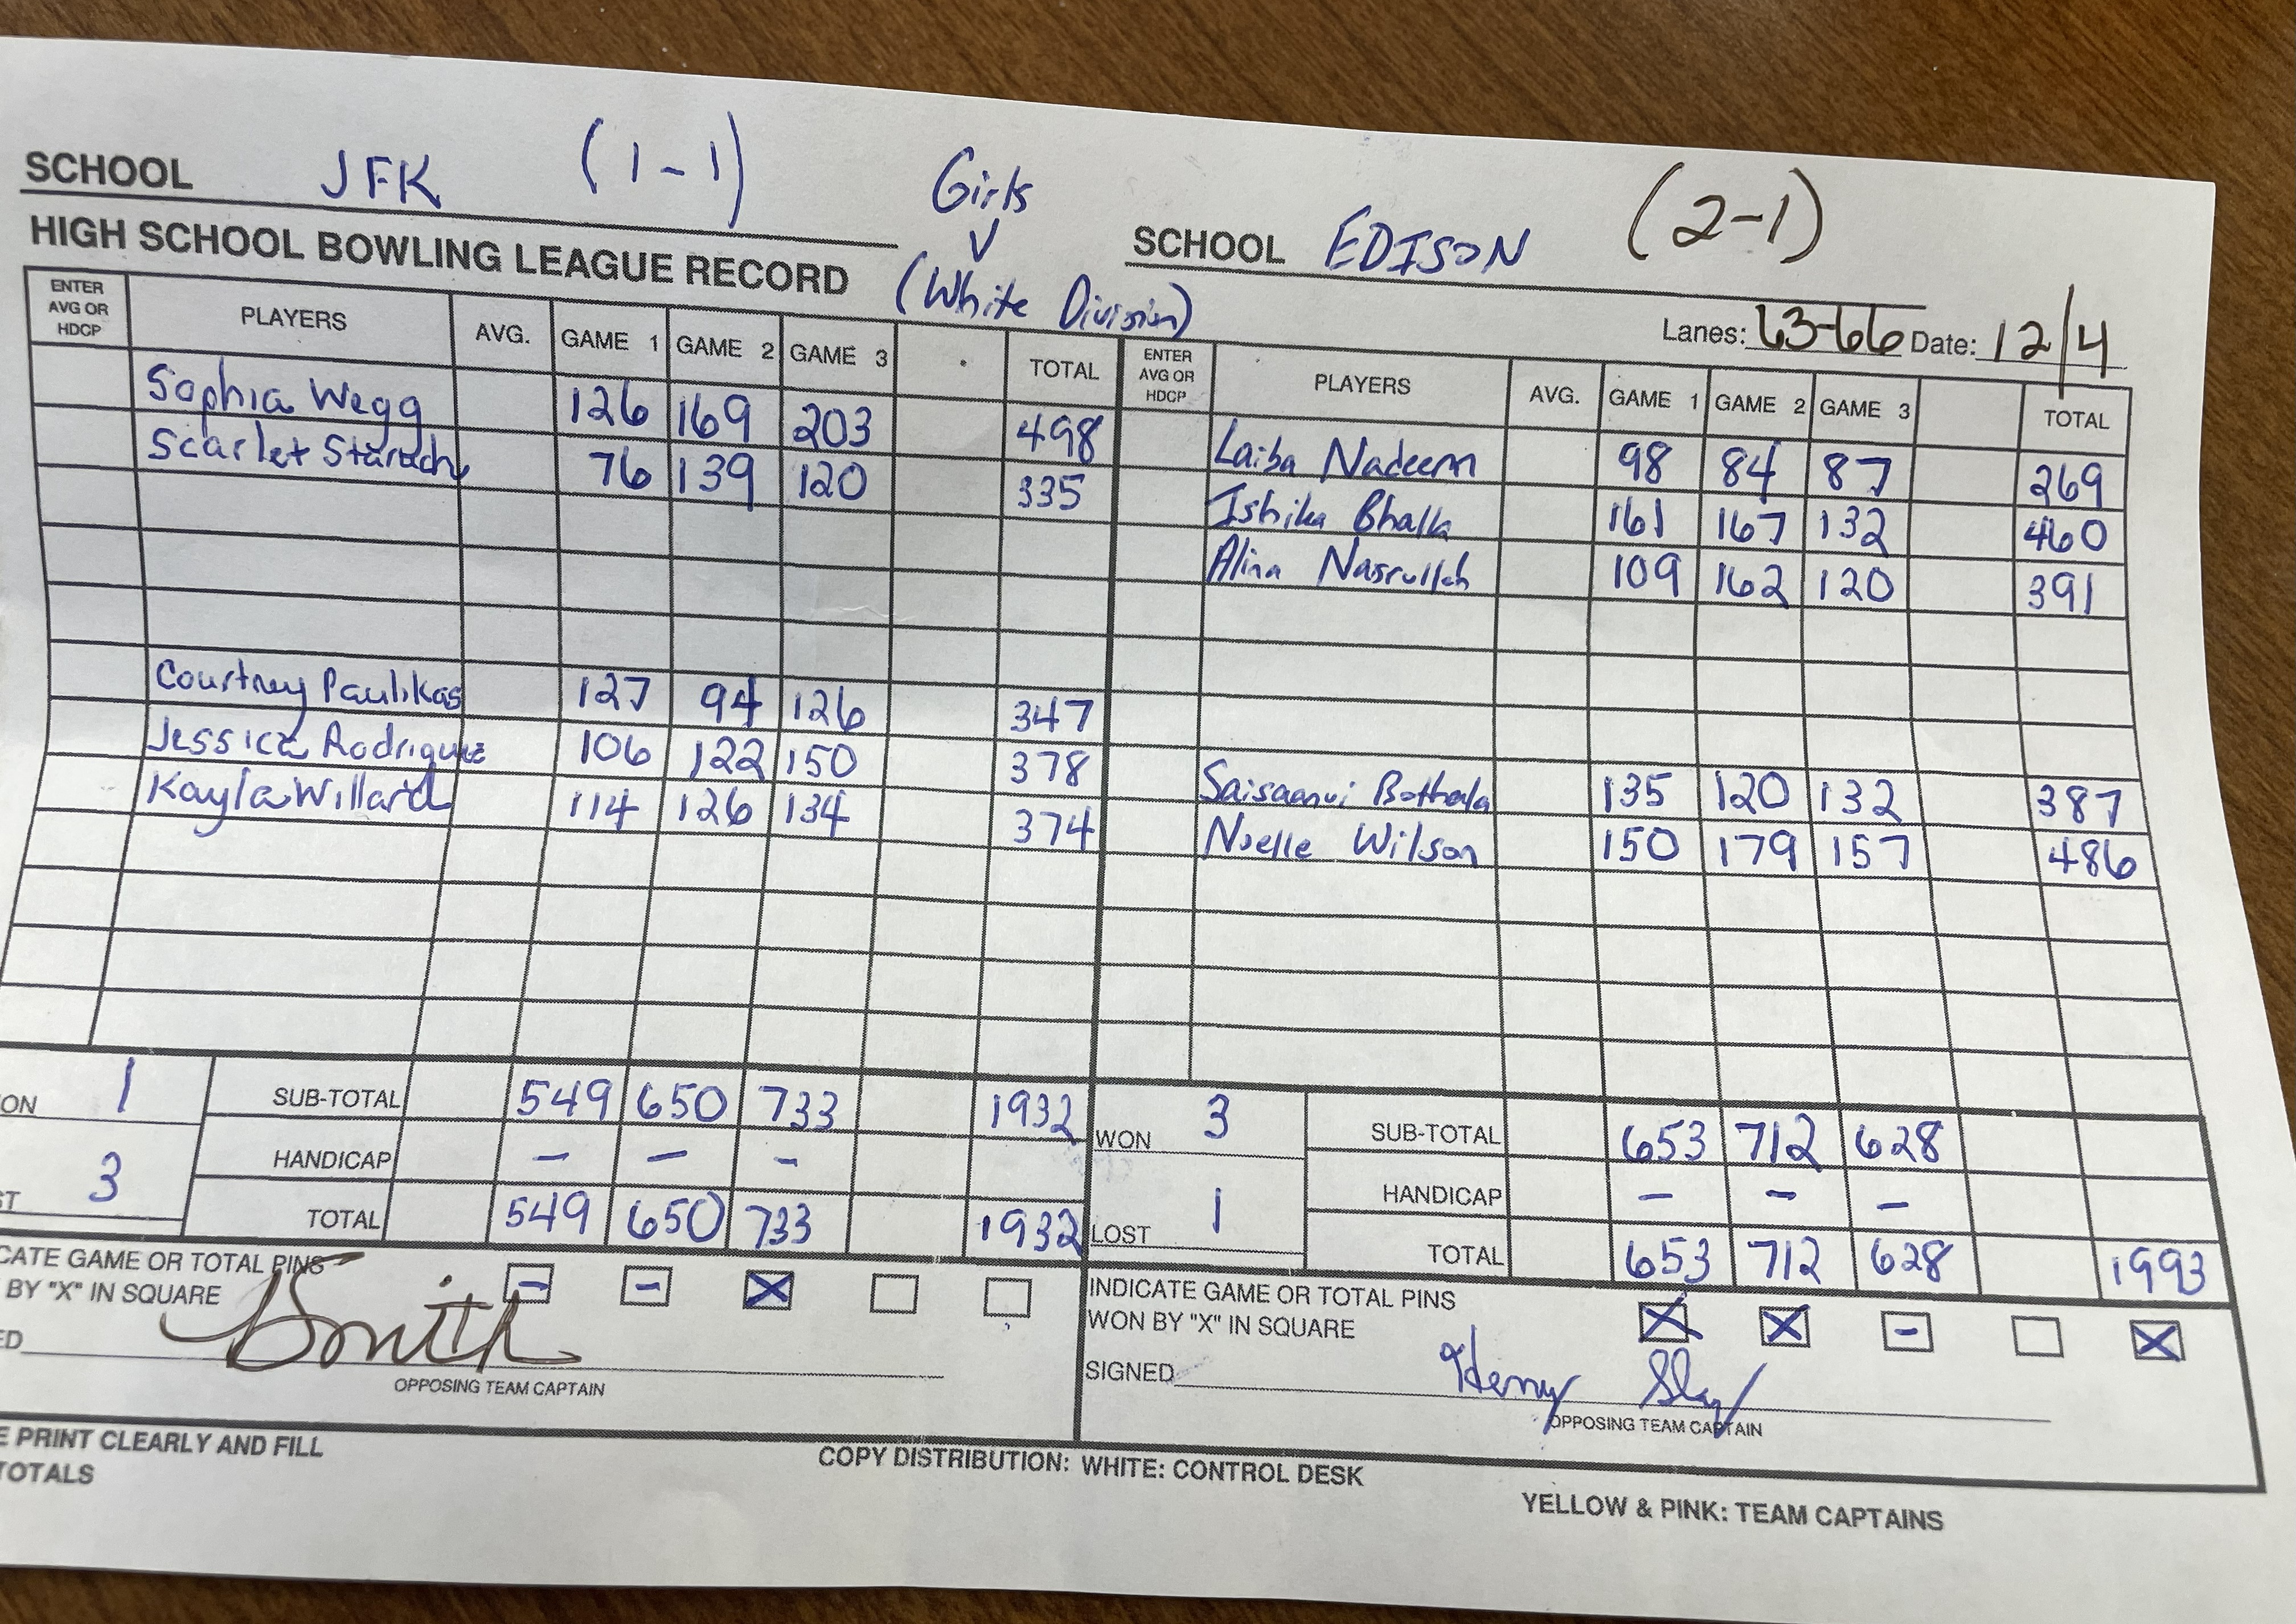 SCHOOL JFK (1-1) Girls
SCHOOL EDISON (2-1)
HIGH SCHOOL BOWLING LEAGUE RECORD (White Division)
Lanes: 63-66 Date: 12/4
ENTER AVG OR HDCP PLAYERS AVG. GAME 1 GAME 2 GAME 3 TOTAL
Sophia Wegg 126 169 203 498
Scarlet 76 139 120 335
Courtney Paulikas 127 94 126 347
Jessica Rodriguez 106 122 150 378
Kayla Willard 114 126 134 374
ON 1
ST 3
SUB-TOTAL 549 650 733 1932
HANDICAP - - -
TOTAL 549 650 733 1932
CATE GAME OR TOTAL PINS
BY "X" IN SQUARE - - X
ED Smith
OPPOSING TEAM CAPTAIN
ENTER AVG OR HDCP PLAYERS AVG. GAME 1 GAME 2 GAME 3 TOTAL
Laiba Nadeem 98 84 87 269
Ishika Bhalla 161 167 132 460
Alina Nasrullah 109 162 120 391
Saisaanvi Bothala 135 120 132 387
Noelle Wilson 150 179 157 486
WON 3
LOST 1
SUB-TOTAL 653 712 628
HANDICAP - - -
TOTAL 653 712 628 1993
INDICATE GAME OR TOTAL PINS
WON BY "X" IN SQUARE X X - X
SIGNED Henry
OPPOSING TEAM CAPTAIN
E PRINT CLEARLY AND FILL
TOTALS
COPY DISTRIBUTION: WHITE: CONTROL DESK
YELLOW & PINK: TEAM CAPTAINS